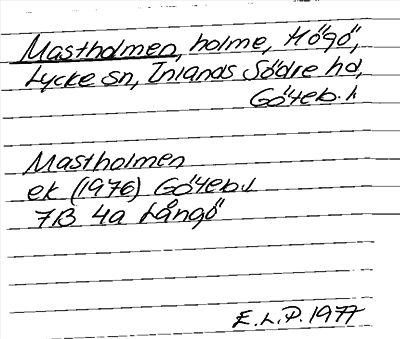 Mastholmen, holme, Högö,
Lycke sn, Inlands Södre hd,
Göteb. l.
Mastholmen
ek (1976) Göteb. l
7B 4a Långö
E.L.P. 1977